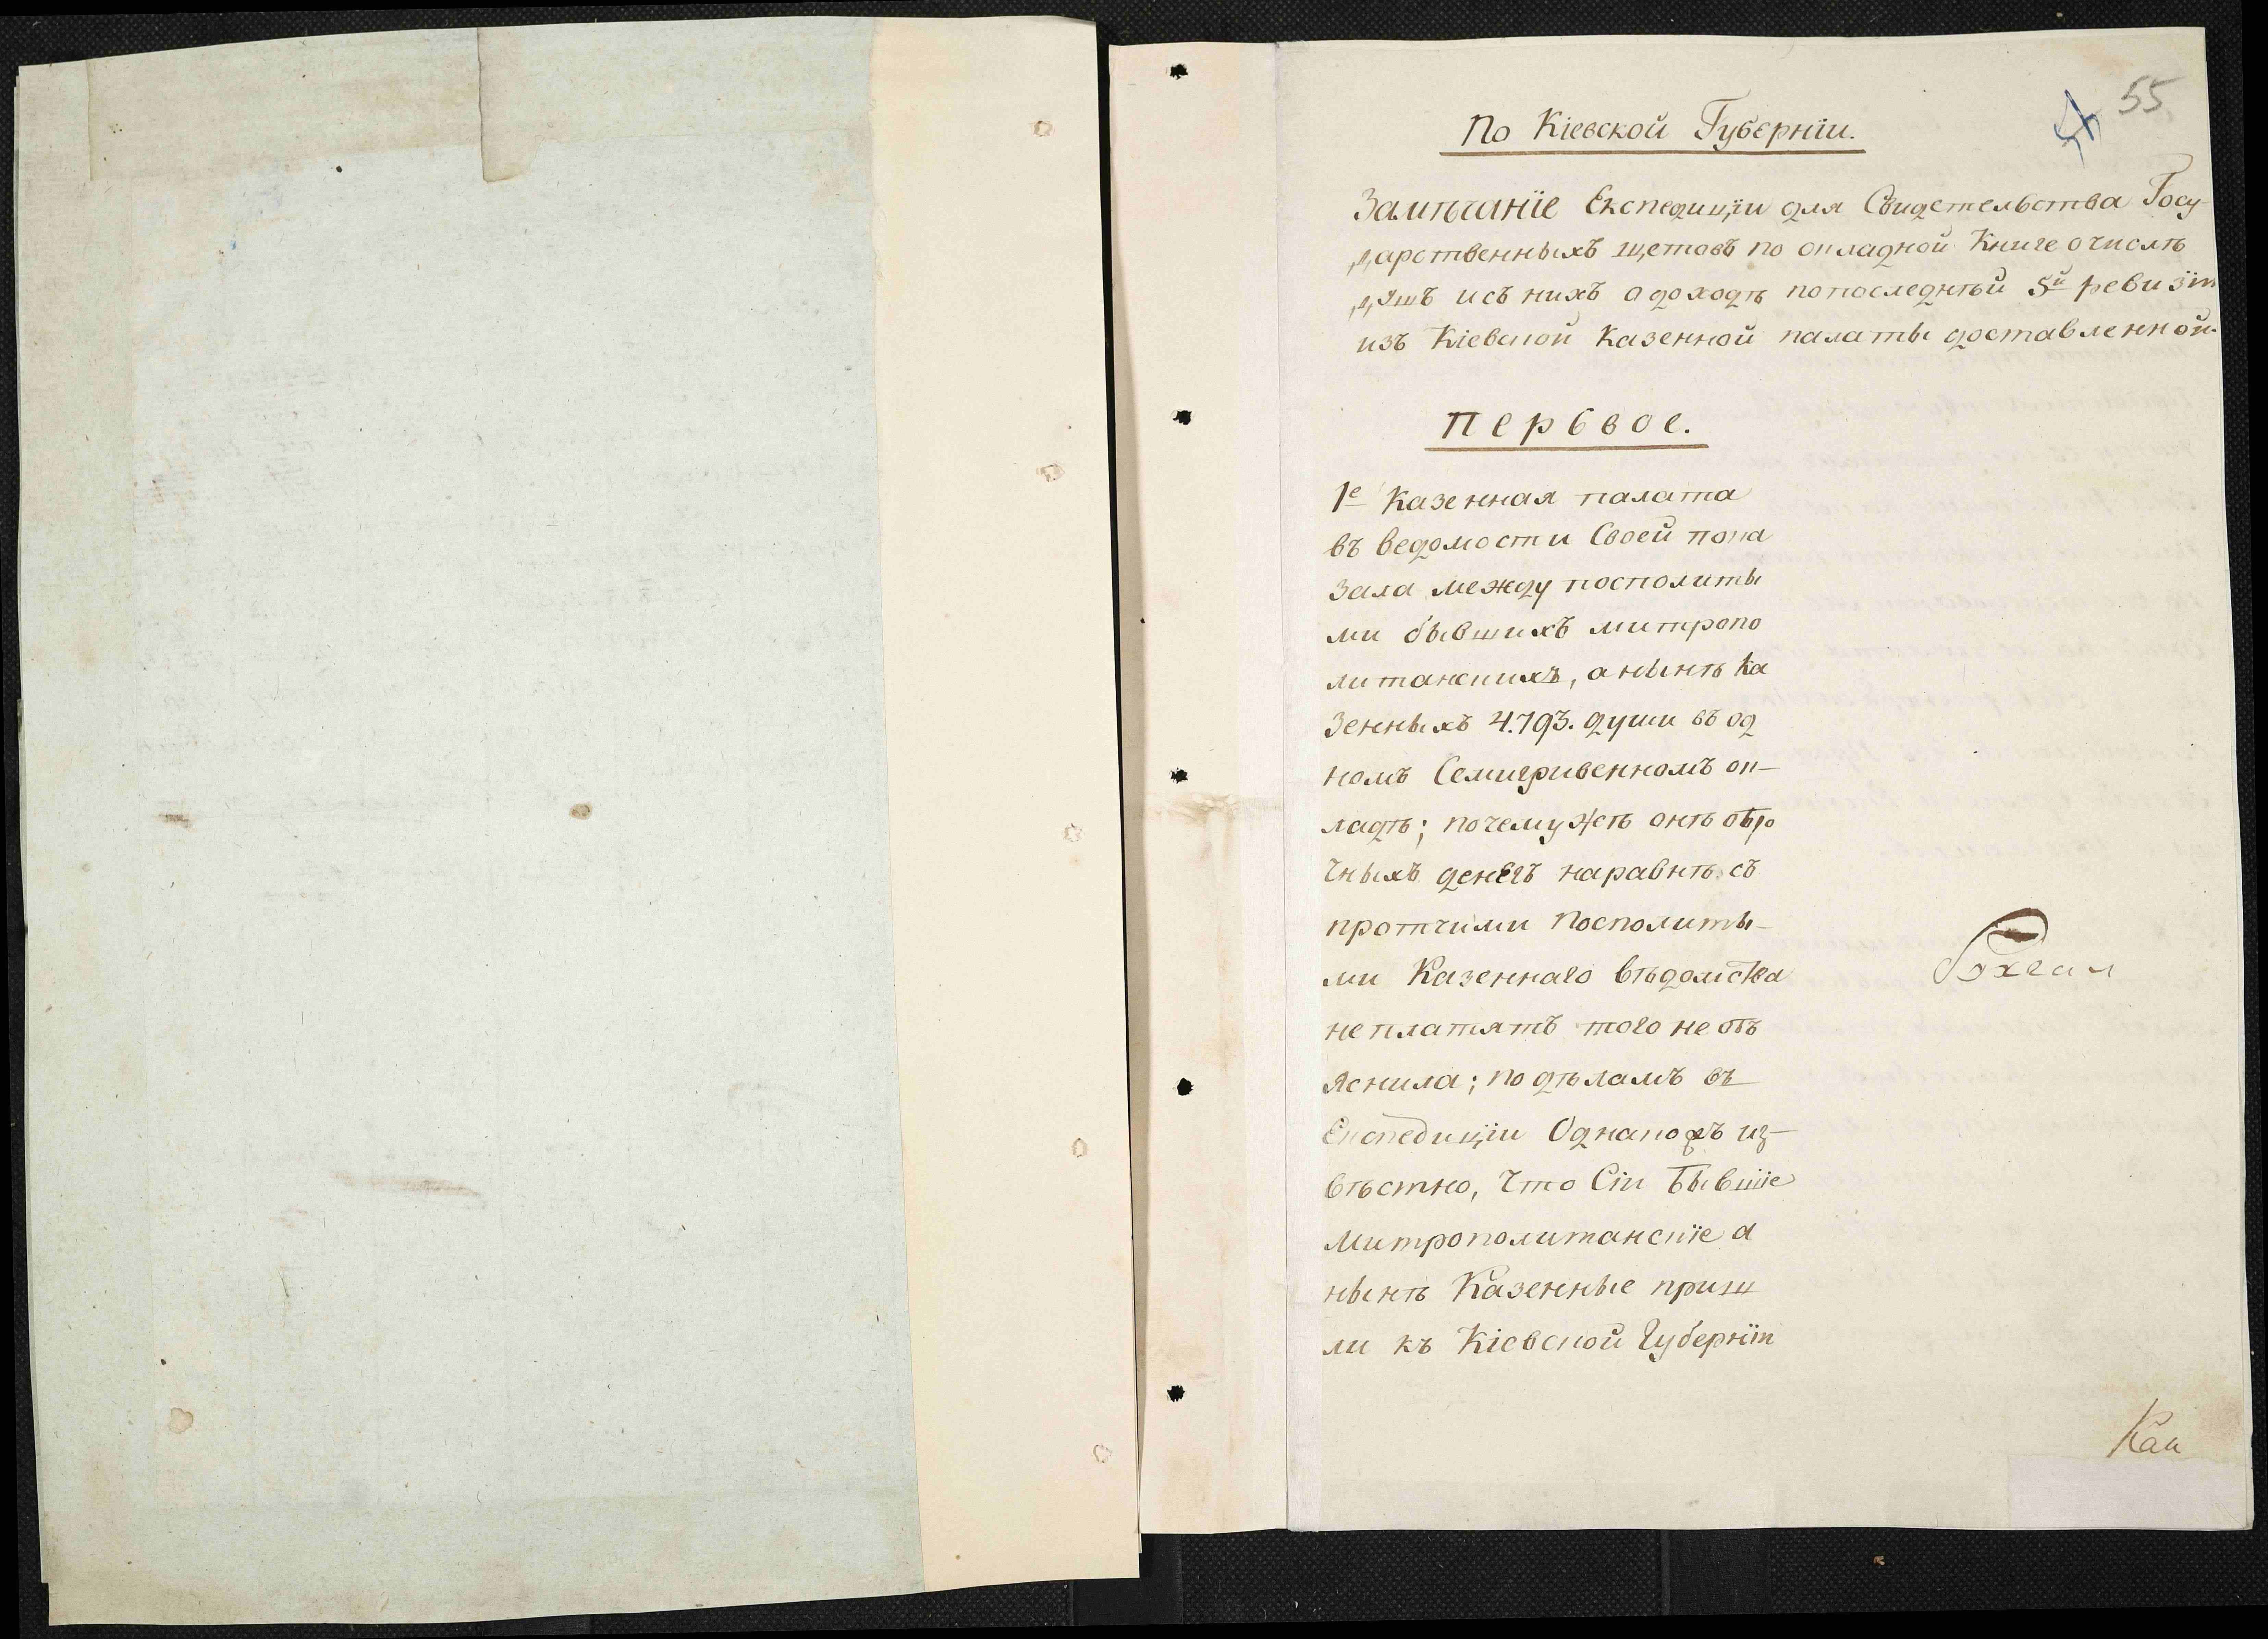 55
По Кіевской Губерніи.
Замѣчаніе Експедиціи для Свидетельства Госу-
дарственныхъ щетовъ по окладной Книге о числѣ
душъ и съ нихъ о доходѣ по последнѣй 5й ревизіи
изъ Кіевской Казенной палаты доставленной.
Первое.
1е Казенная палата
въ ведомости Своей пока
зала между посполиты
ми бывшихъ митропо
литанскихъ, а нынѣ Ка
зенныхъ 4.793. души въ од
номъ Семигривенномъ ок-
ладѣ; почемужъ онѣ обро
чныхъ денегъ наравнѣ съ
протчими Посполиты-
ми Казеннаго вѣдомства
не платятъ того не объ
яснила; по дѣламъ въ
Експедиціи Однакожъ из-
вѣстно, что Сіи бывшіе
Митрополитанскіе а
нынѣ Казенные приш
ли къ Кіевской Губерніи
Как